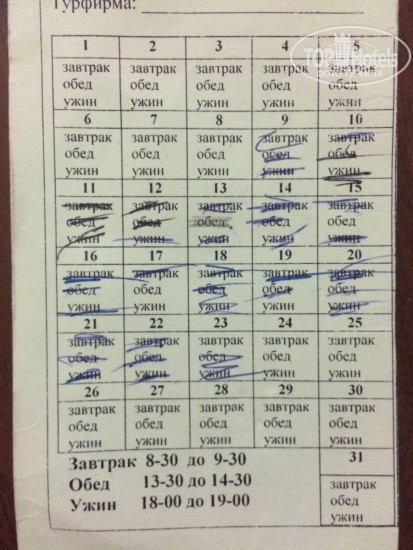 Турфирма:
1 2 3 4 5
завтрак завтрак завтрак завтрак завтрак
обед обед обед обед обед
ужин ужин ужин ужин ужин
6 7 8 9 10
завтрак завтрак завтрак завтрак завтрак
обед обед обед обед обед
ужин ужин ужин ужин ужин
11 12 13 14 15
завтрак завтрак завтрак завтрак завтрак
обед обед обед обед обед
ужин ужин ужин ужин ужин
16 17 18 19 20
завтрак завтрак завтрак завтрак завтрак
обед обед обед обед обед
ужин ужин ужин ужин ужин
21 22 23 24 25
завтрак завтрак завтрак завтрак завтрак
обед обед обед обед обед
ужин ужин ужин ужин ужин
26 27 28 29 30
завтрак завтрак завтрак завтрак завтрак
обед обед обед обед обед
ужин ужин ужин ужин ужин
Завтрак 8-30 до 9-30 31
Обед 13-30 до 14-30 завтрак
Ужин 18-00 до 19-00 обед
ужин
TopHotels